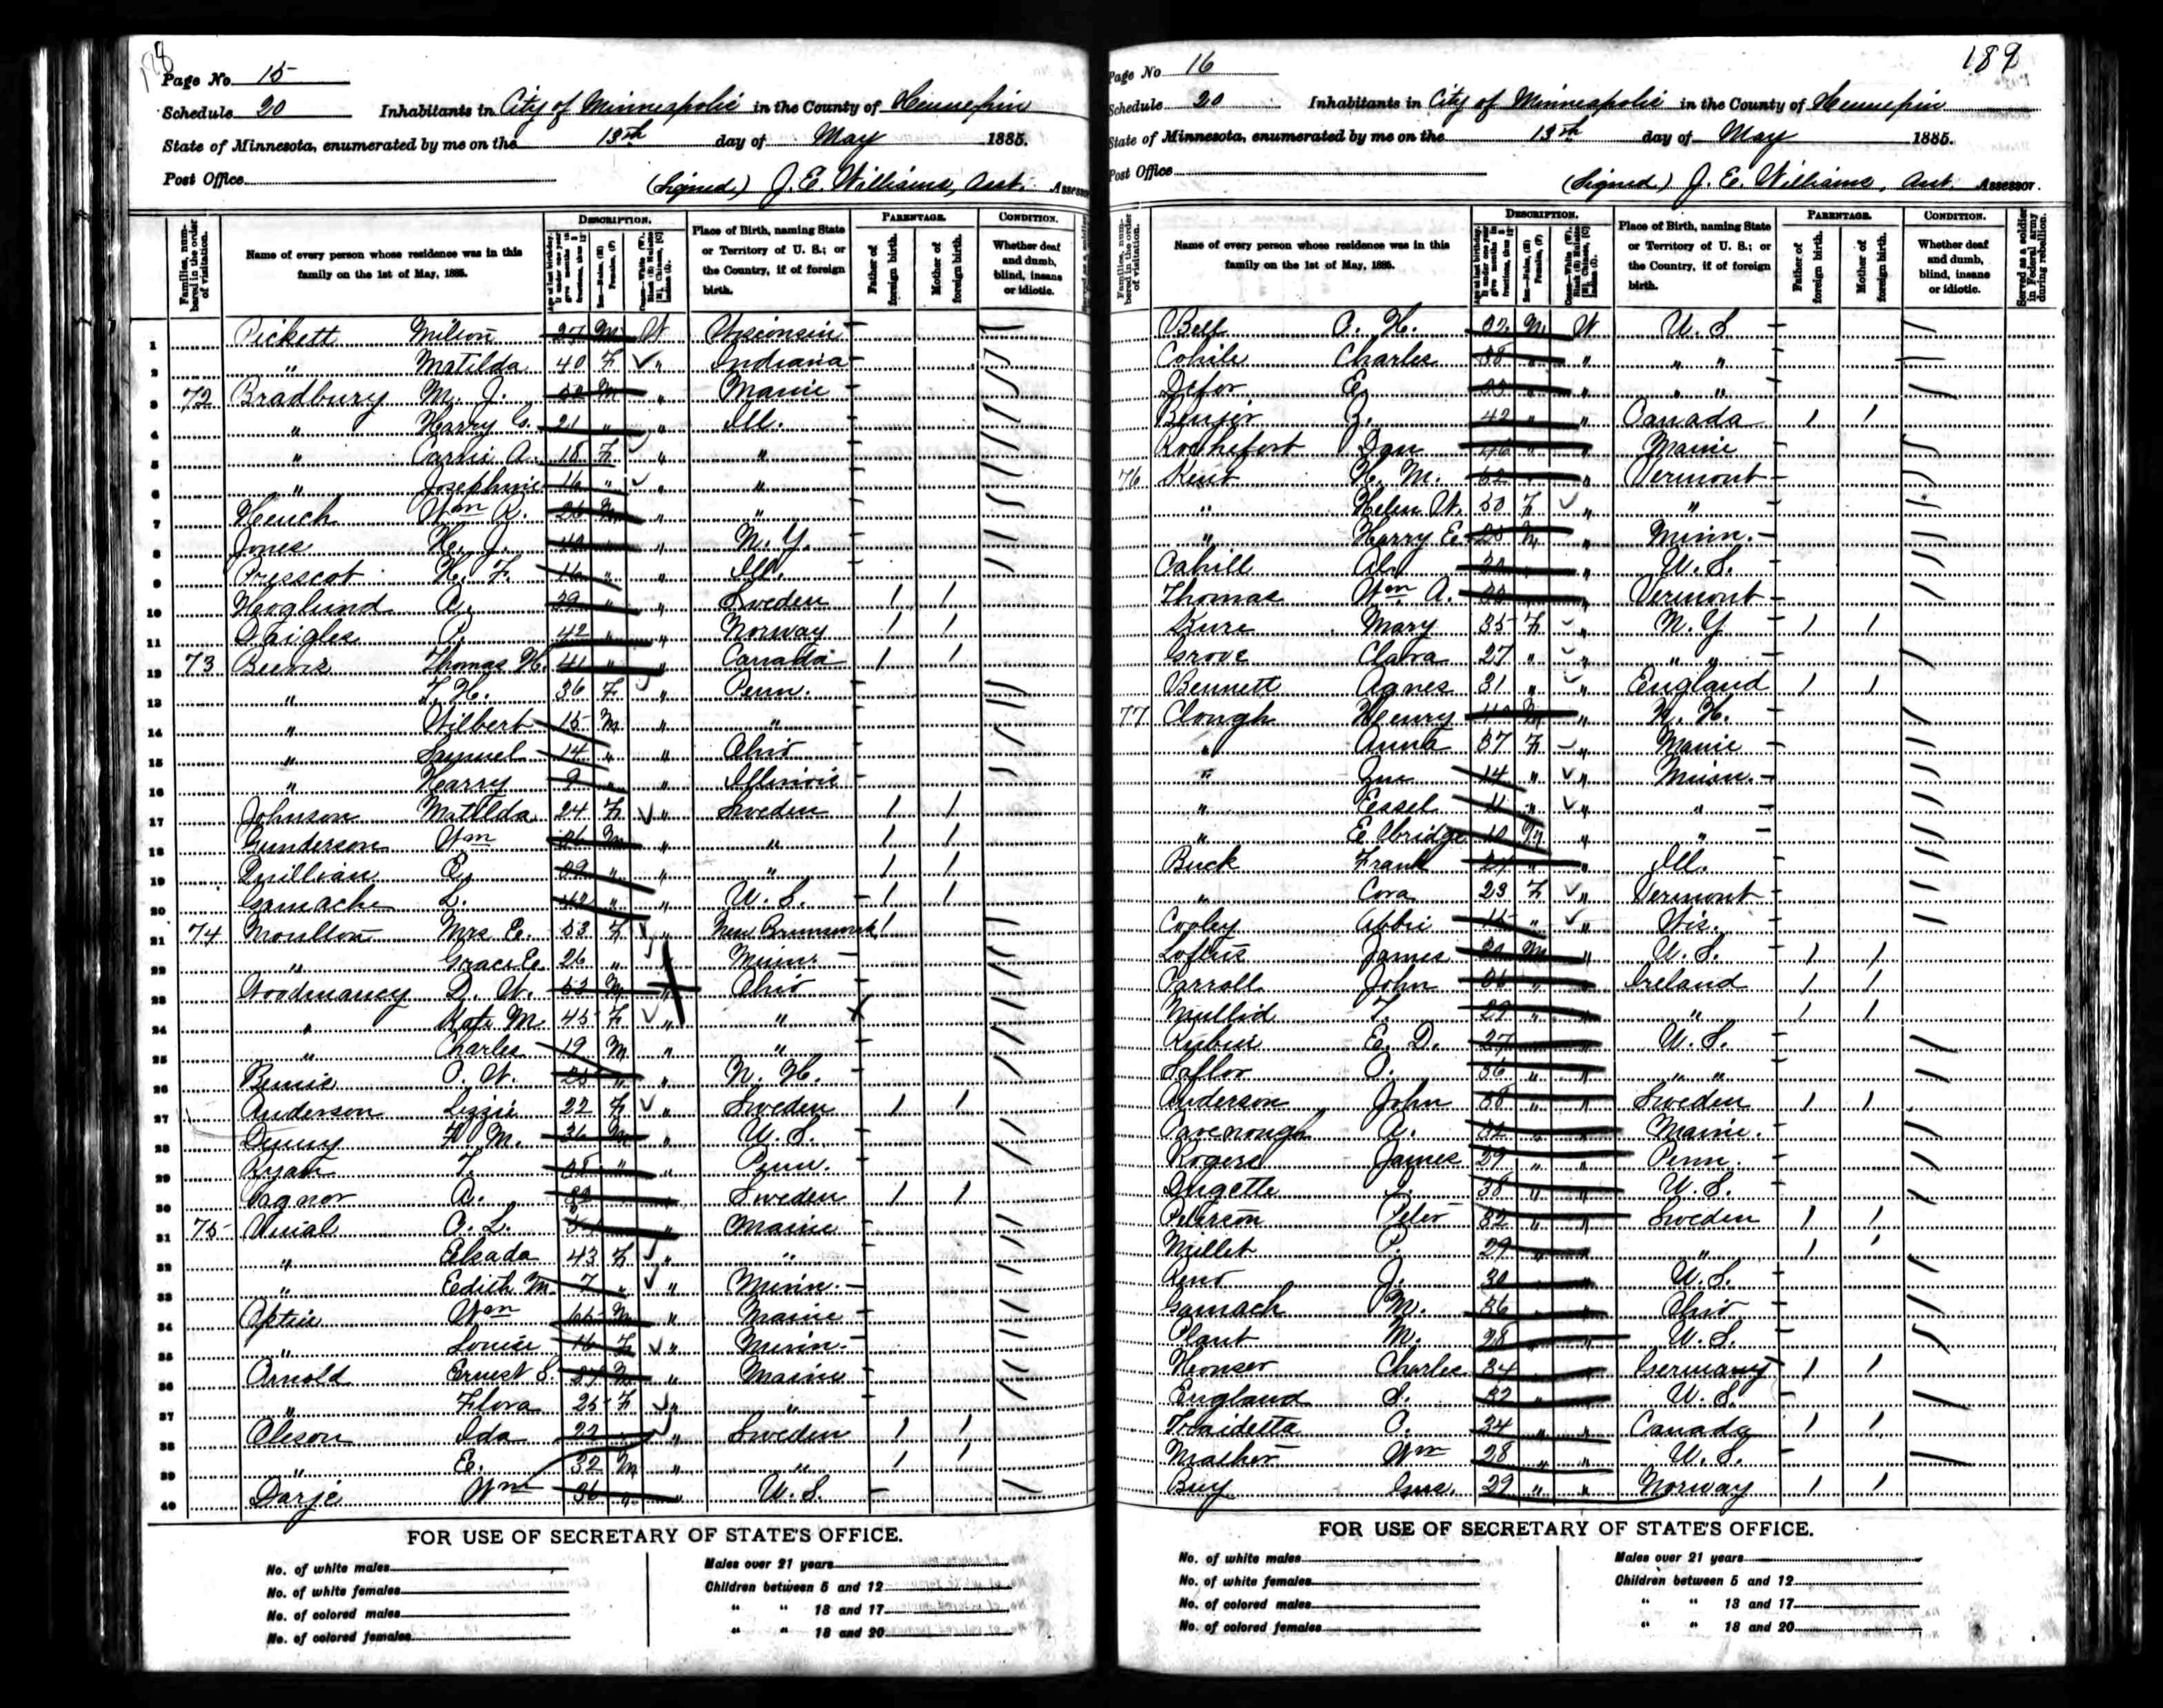 178
Page No 15
Schedule 20 Inhabitants in City of Minneapolis in the County of Hennepin
State of Minnesota, enumerated by me on the 13th day of May 1885.
Post Office
(Signed) J. E. Williams, Asst. Assessor
Families, numbered in the order of visitation.
Name of every person whose residence was in this family on the 1st of May, 1885.
DESCRIPTION.
Place of Birth, naming State or Territory of U. S.; or the Country, if of foreign birth.
PARENTAGE.
Father of foreign birth.
Mother of foreign birth.
CONDITION.
Whether deaf and dumb, blind, insane or idiotic.
1 Pickett Milton M W Wisconsin
2 " Matilda 40 F " Indiana
3 72 Bradbury M. J. M " Maine
4 " Harry G. 21 " " Ill.
5 " Carrie A. 18 F " "
6 " Josephine 16 " " "
7 Hench Wm R. 26 M " "
8 Jones H. J. " " N. Y.
9 Presscot H. F. 16 " " Ill.
10 Hooglund A. 39 " " Sweden 1 1
11 Daigles P. 42 " " Norway 1 1
12 73 Beevis Thomas H. 41 " " Canada 1 1
13 " T. H. 36 F " Penn.
14 " Wilbert 15 M " "
15 " Samuel 14 " " Ohio
16 " Harry 9 " " Illinois
17 Johnson Matilda 24 F " Sweden 1 1
18 Gunderson Wm 36 M " " 1 1
19 Quillian 39 " " " 1 1
20 Gamache L. " " U. S. 1 1
21 74 Moulton Mrs E. 53 F " New Brunswick 1
22 " Grace E. 26 " " Minn.
23 Woodmancy D. W. 53 M " Ohio
24 " Kate M. 45 F " "
25 " Charles 19 M " "
26 Bemis O. W. 25 " " N. H.
27 Anderson Lizzie 22 F " Sweden 1 1
28 Denny H. M. 36 M " U. S.
29 Ryan T. 38 " " Penn.
30 Vagnor A. " Sweden 1 1
31 75 C. L. " Maine
32 " Elsada 43 F " "
33 " Edith M. 7 " " Minn.
34 Wm 65 M " Maine
35 " Louise 16 F " Minn.
36 Arnold Ernest S. 27 M " Maine
37 " Flora 25 F " "
38 Oleson Ida 22 " " Sweden 1 1
39 " E. 32 M " " 1 1
40 Darje Wm 36 " " U. S.
FOR USE OF SECRETARY OF STATE'S OFFICE.
No. of white males
No. of white females
No. of colored males
No. of colored females
Males over 21 years
Children between 5 and 12
" " 13 and 17
" " 18 and 20
189
Page No 16
Schedule 20 Inhabitants in City of Minneapolis in the County of Hennepin
State of Minnesota, enumerated by me on the 13th day of May 1885.
Post Office
(Signed) J. E. Williams, Asst. Assessor.
Families, numbered in the order of visitation.
Name of every person whose residence was in this family on the 1st of May, 1885.
DESCRIPTION.
Place of Birth, naming State or Territory of U. S.; or the Country, if of foreign birth.
PARENTAGE.
Father of foreign birth.
Mother of foreign birth.
CONDITION.
Whether deaf and dumb, blind, insane or idiotic.
Served as a soldier in Federal army during rebellion.
Bell C. H. 32 M W U. S.
Cohile Charles 38 " " " "
E. " " " "
R. 42 " " Canada 1 1
Rochefort Dan " " Maine
76 Kent H. M. 52 " " Vermont
" Helen W. 50 F " "
" Harry E. 25 M " Minn.
Cahill Al " " U. S.
Thomas Wm A. " " Vermont
Mary 35 F " N. Y. 1 1
Grove Clara 27 " " " "
Bennett Agnes 31 " " England 1 1
77 Clough Henry M " N. H.
" Anna 37 F " Maine
" 14 " " Minn.
" Eessel 11 " " "
" Elbridge 10 M " "
Buck Frank 27 " " Ill.
" Cora 23 F " Vermont
Cooley Abbie 15 " " Wis.
Loftus James M " U. S. 1 1
Farroll John 36 " " Ireland 1 1
Mullid T. 29 " " " 1 1
E. D. 27 " " U. S.
Saflor O. 36 " " " "
Anderson John 38 " " Sweden 1 1
Cavenough A. 32 " " Maine.
Rogers James 29 " " Penn.
J. 38 " " U. S.
Peterson Peter 32 " " Sweden 1 1
Millet P. 29 " " " 1 1
Reno J. 30 " " U. S.
Gamach M. 36 " " Ohio
Plant M. 28 " " U. S.
Honser Charles 34 " " Germany 1 1
England S. 32 " " U. S.
Fraidetta C. 34 " " Canada 1 1
Mather Wm 28 " " U. S.
Buy Gus. 29 " " Norway 1 1
FOR USE OF SECRETARY OF STATE'S OFFICE.
No. of white males
No. of white females
No. of colored males
No. of colored females
Males over 21 years
Children between 5 and 12
" " 13 and 17
" " 18 and 20